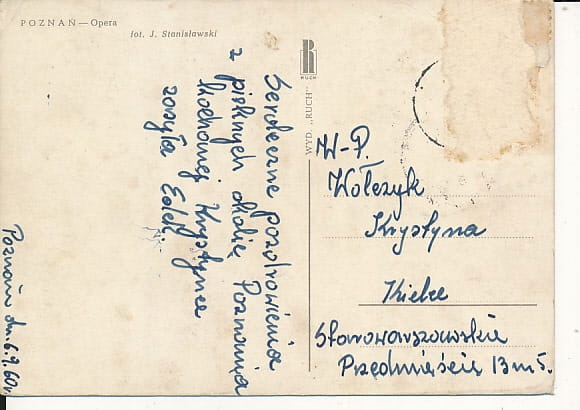 POZNAŃ — Opera
fot. J. Stanisławski
Serdeczne pozdrowienia
z pięknych okolic Poznania
kochanej Krystynce
zasyła Edek
Poznań dn. 6.9.60r
RUCH
WYD. „RUCH"
W-P.
Wołczyk
Krystyna
Kielce
Starowarszawskie
Przedmieście 13 m 5.